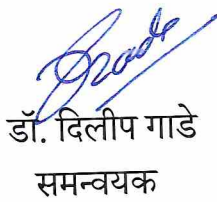 डॉ. दिलीप गाडे
समन्वयक